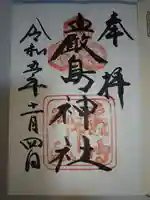 奉拝
嚴島神社
令和五年十一月四日